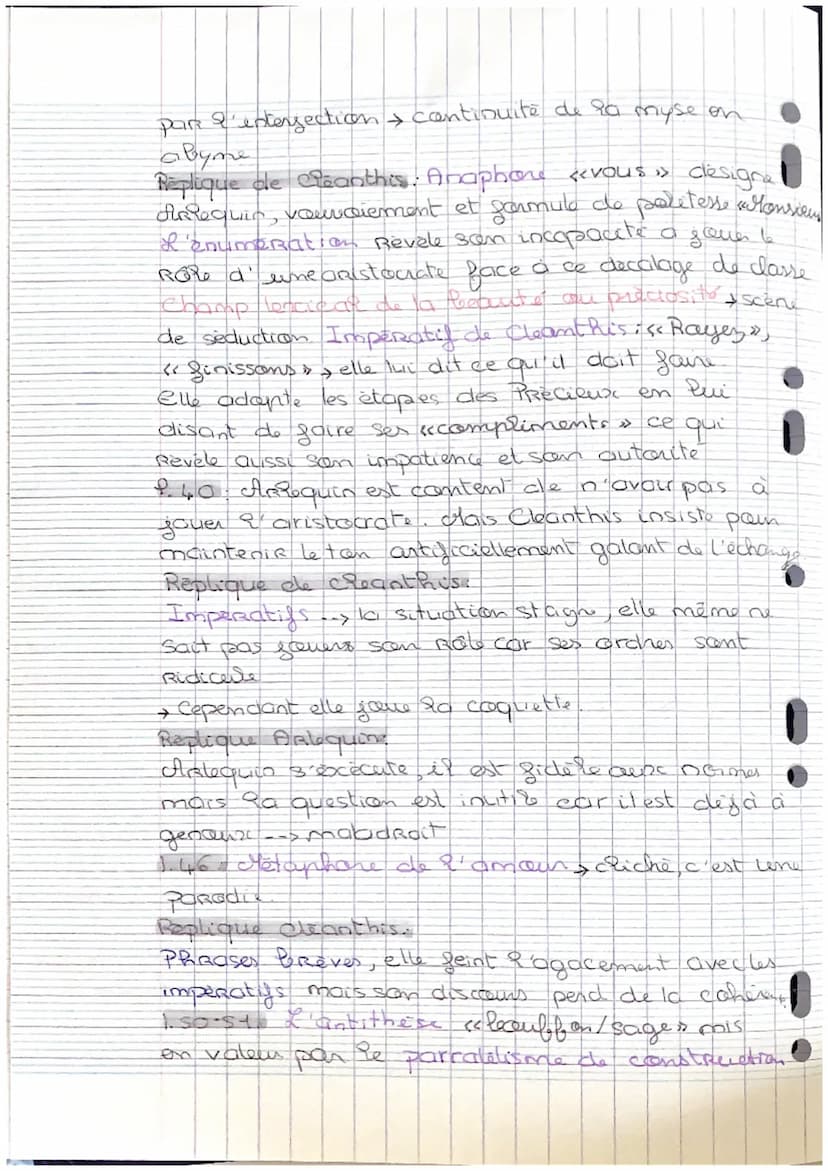 par l'interjection → continuité de la myse en
abyme
Réplique de Cléanthis : Anaphore «vous» désigne
Arlequin, vouvoiement et formule de politesse «Monsieur
L'énumération Révèle son incapacité a jouer le
Rôle d'une aristocrate face à ce décalage de classe
Champ lexical de la beauté ou préciosité → scène
de séduction Impératif de Cleanthis : «Rayez»,
«finissons» → elle lui dit ce qu'il doit faire
Elle adopte les étapes des Précieux en lui
disant de faire ses «compliments» ce qui
Révèle aussi son impatience et son autorité
l.40 : Arlequin est content de n'avoir pas à
jouer l'aristocrate. Mais Cleanthis insiste pour
maintenir le ton artificiellement galant de l'échange
Réplique de Cléanthis :
Impératifs --> la situation stagne, elle même ne
sait pas jouer son Rôle car ses ordres sont
Ridicule
→ Cependant elle joue la coquette.
Réplique Arlequin :
Arlequin s'éxécute, il est fidèle aux normes
mais la question est inutile car il est déjà à
genoux --> maladroit
l.46 : Métaphore de l'amour → cliché, c'est une
parodie.
Réplique Cléanthis :
Phrases brèves, elle feint l'agacement avec les
impératifs mais son discours perd de la cohérence.
l.50-51 : L'antithèse «bouffon/sage» mis
en valeur par le parralélisme de construction